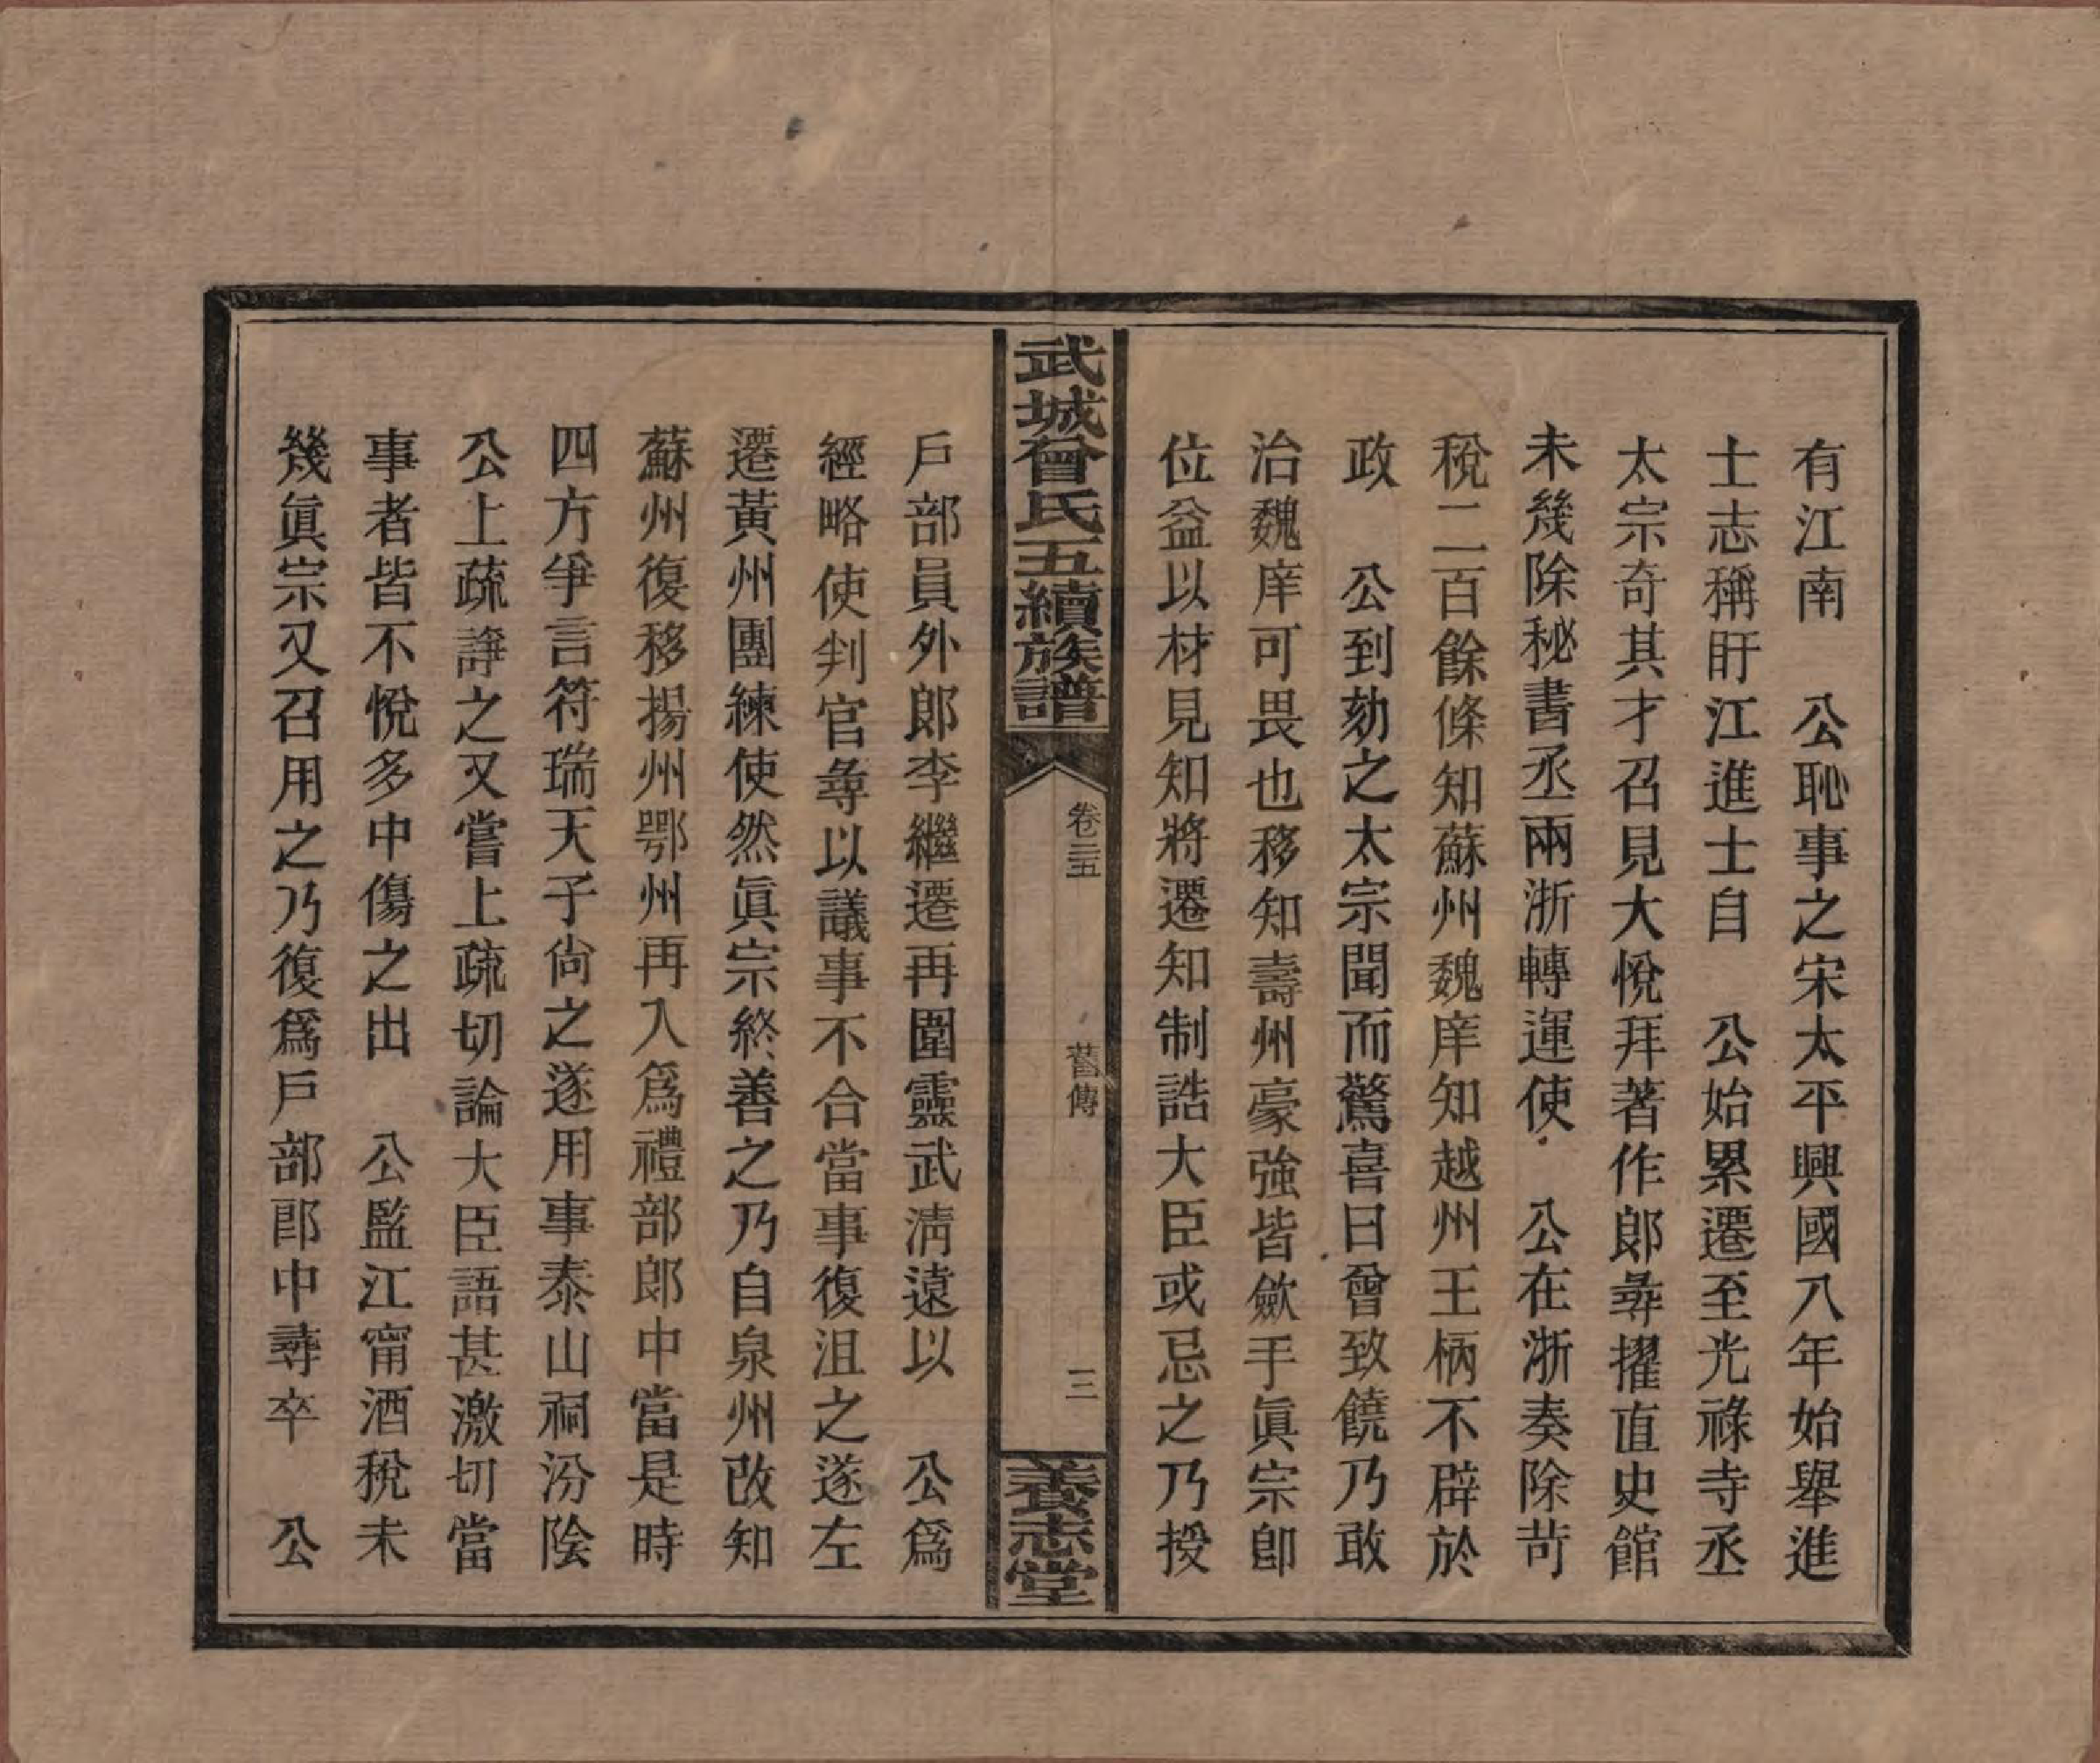 有江南　公恥事之宋太平興國八年始舉進
士志稱盱江進士自　公始累遷至光祿寺丞
太宗奇其才召見大悅拜著作郎尋擢直史館
未幾除秘書丞兩浙轉運使　公在浙奏除苛
稅二百餘條知蘇州魏庠知越州王柄不辟於
政　公到劾之太宗聞而驚喜曰曾致饒乃敢
治魏庠可畏也移知壽州豪強皆歛手眞宗卽
位益以材見知將遷知制誥大臣或忌之乃授
武城曾氏五續族譜
卷三五
舊傳
三
養志堂
戶部員外郎李繼遷再圍靈武淸遠以　公爲
經略使判官尋以議事不合當事復沮之遂左
遷黃州團練使然眞宗終善之乃自泉州改知
蘇州復移揚州鄂州再入爲禮部郎中當是時
四方爭言符瑞天子尙之遂用事泰山祠汾陰
公上疏諍之又嘗上疏切論大臣語甚激切當
事者皆不悅多中傷之出　公監江甯酒稅未
幾眞宗又召用之乃復爲戶部郎中尋卒　公